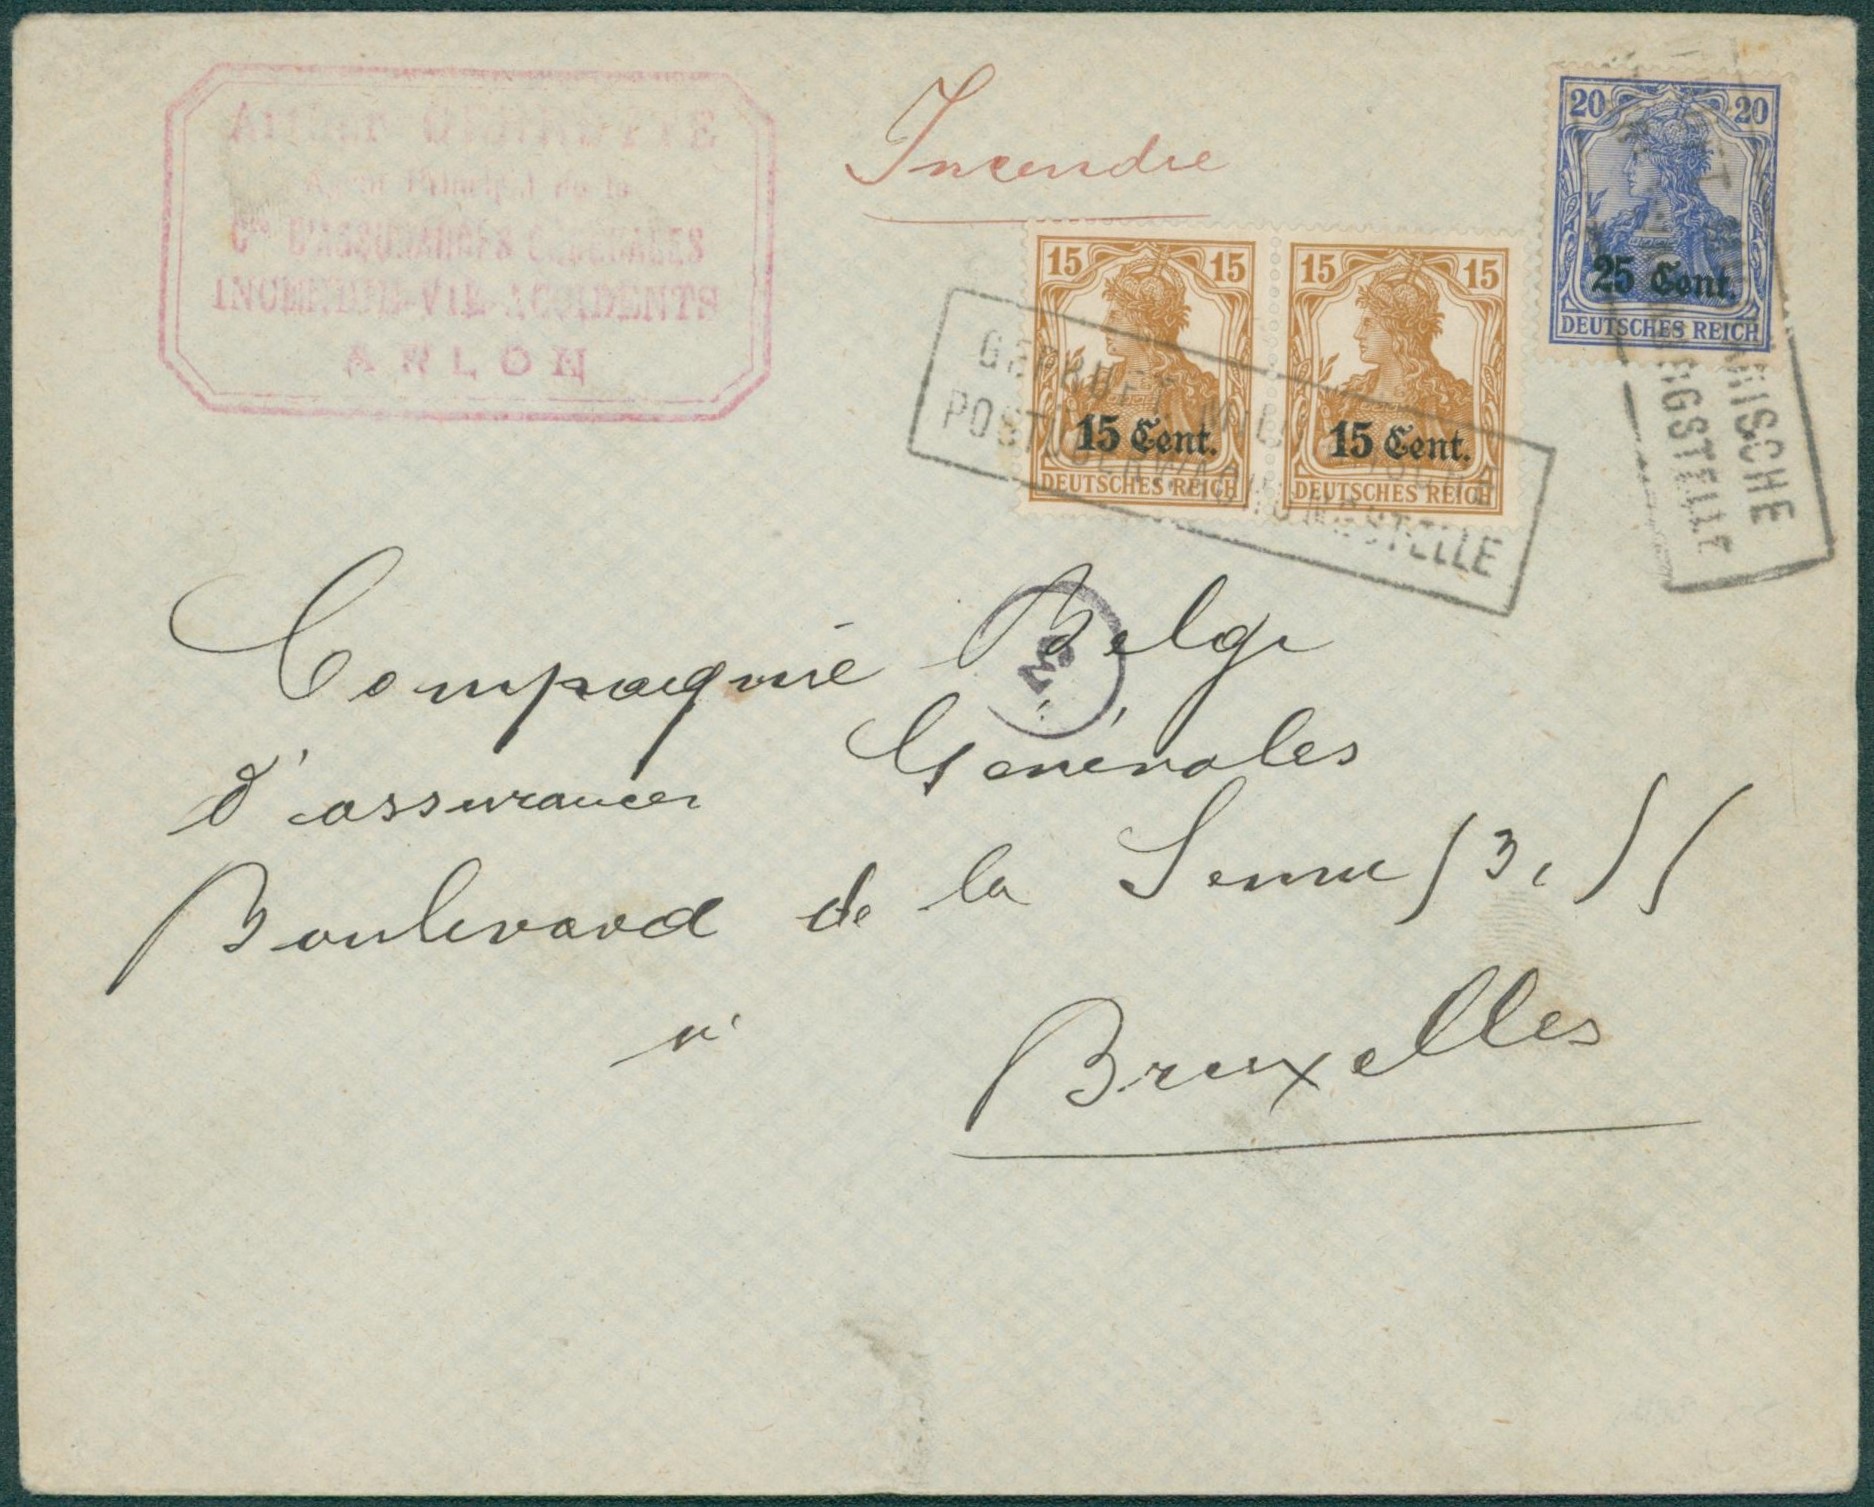 Agent Principal de la
Cie D'ASSURANCES GENERALES
INCENDIE-VIE-ACCIDENTS
ARLON
Incendre
20 20
25 Cent.
DEUTSCHES REICH
15 15
15 Cent.
DEUTSCHES REICH
15 15
15 Cent.
DEUTSCHES REICH
GEPRUEFT MILITÄRISCHE
POSTÜBERWACHUNGSTELLE
Compagnie Belge
d'assurances Générales
Boulevard de la Senne
à
Bruxelles